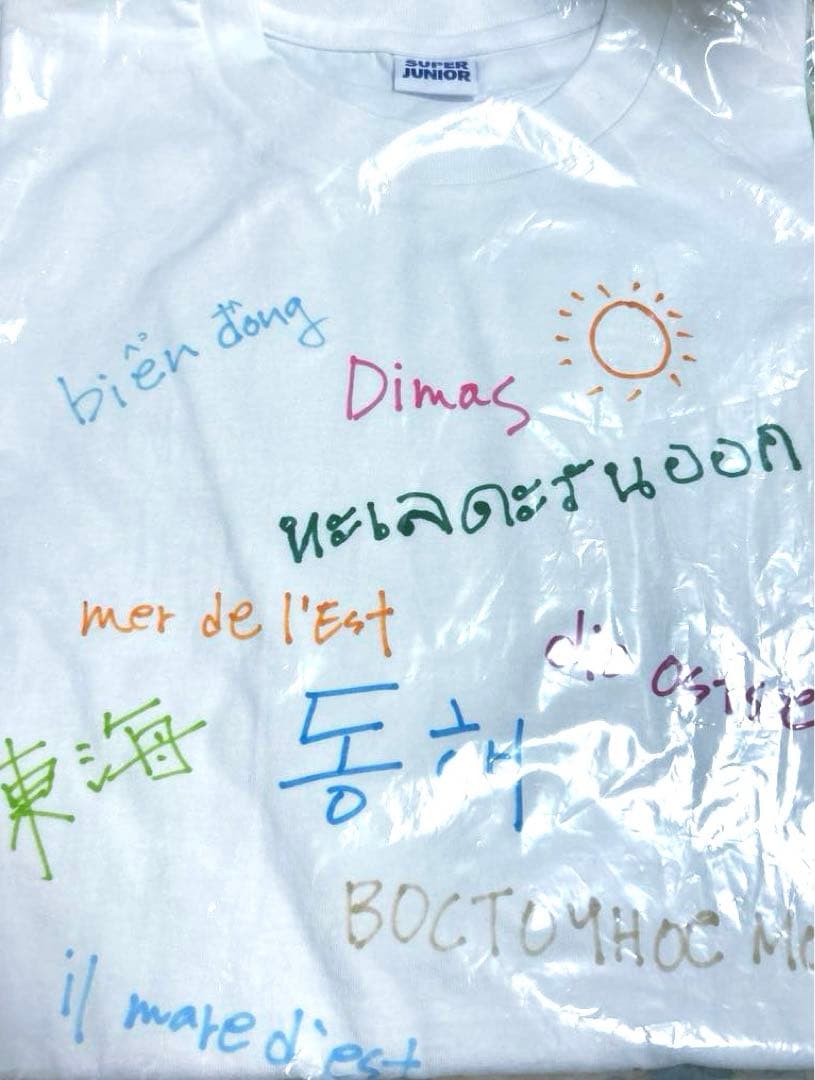 SUPER
JUNIOR
biển đông
Dimas
ทะเลตะวันออก
mer de l'Est
die Ostsee
東海
동해
ВОСТОЧНОЕ
il mare d'est